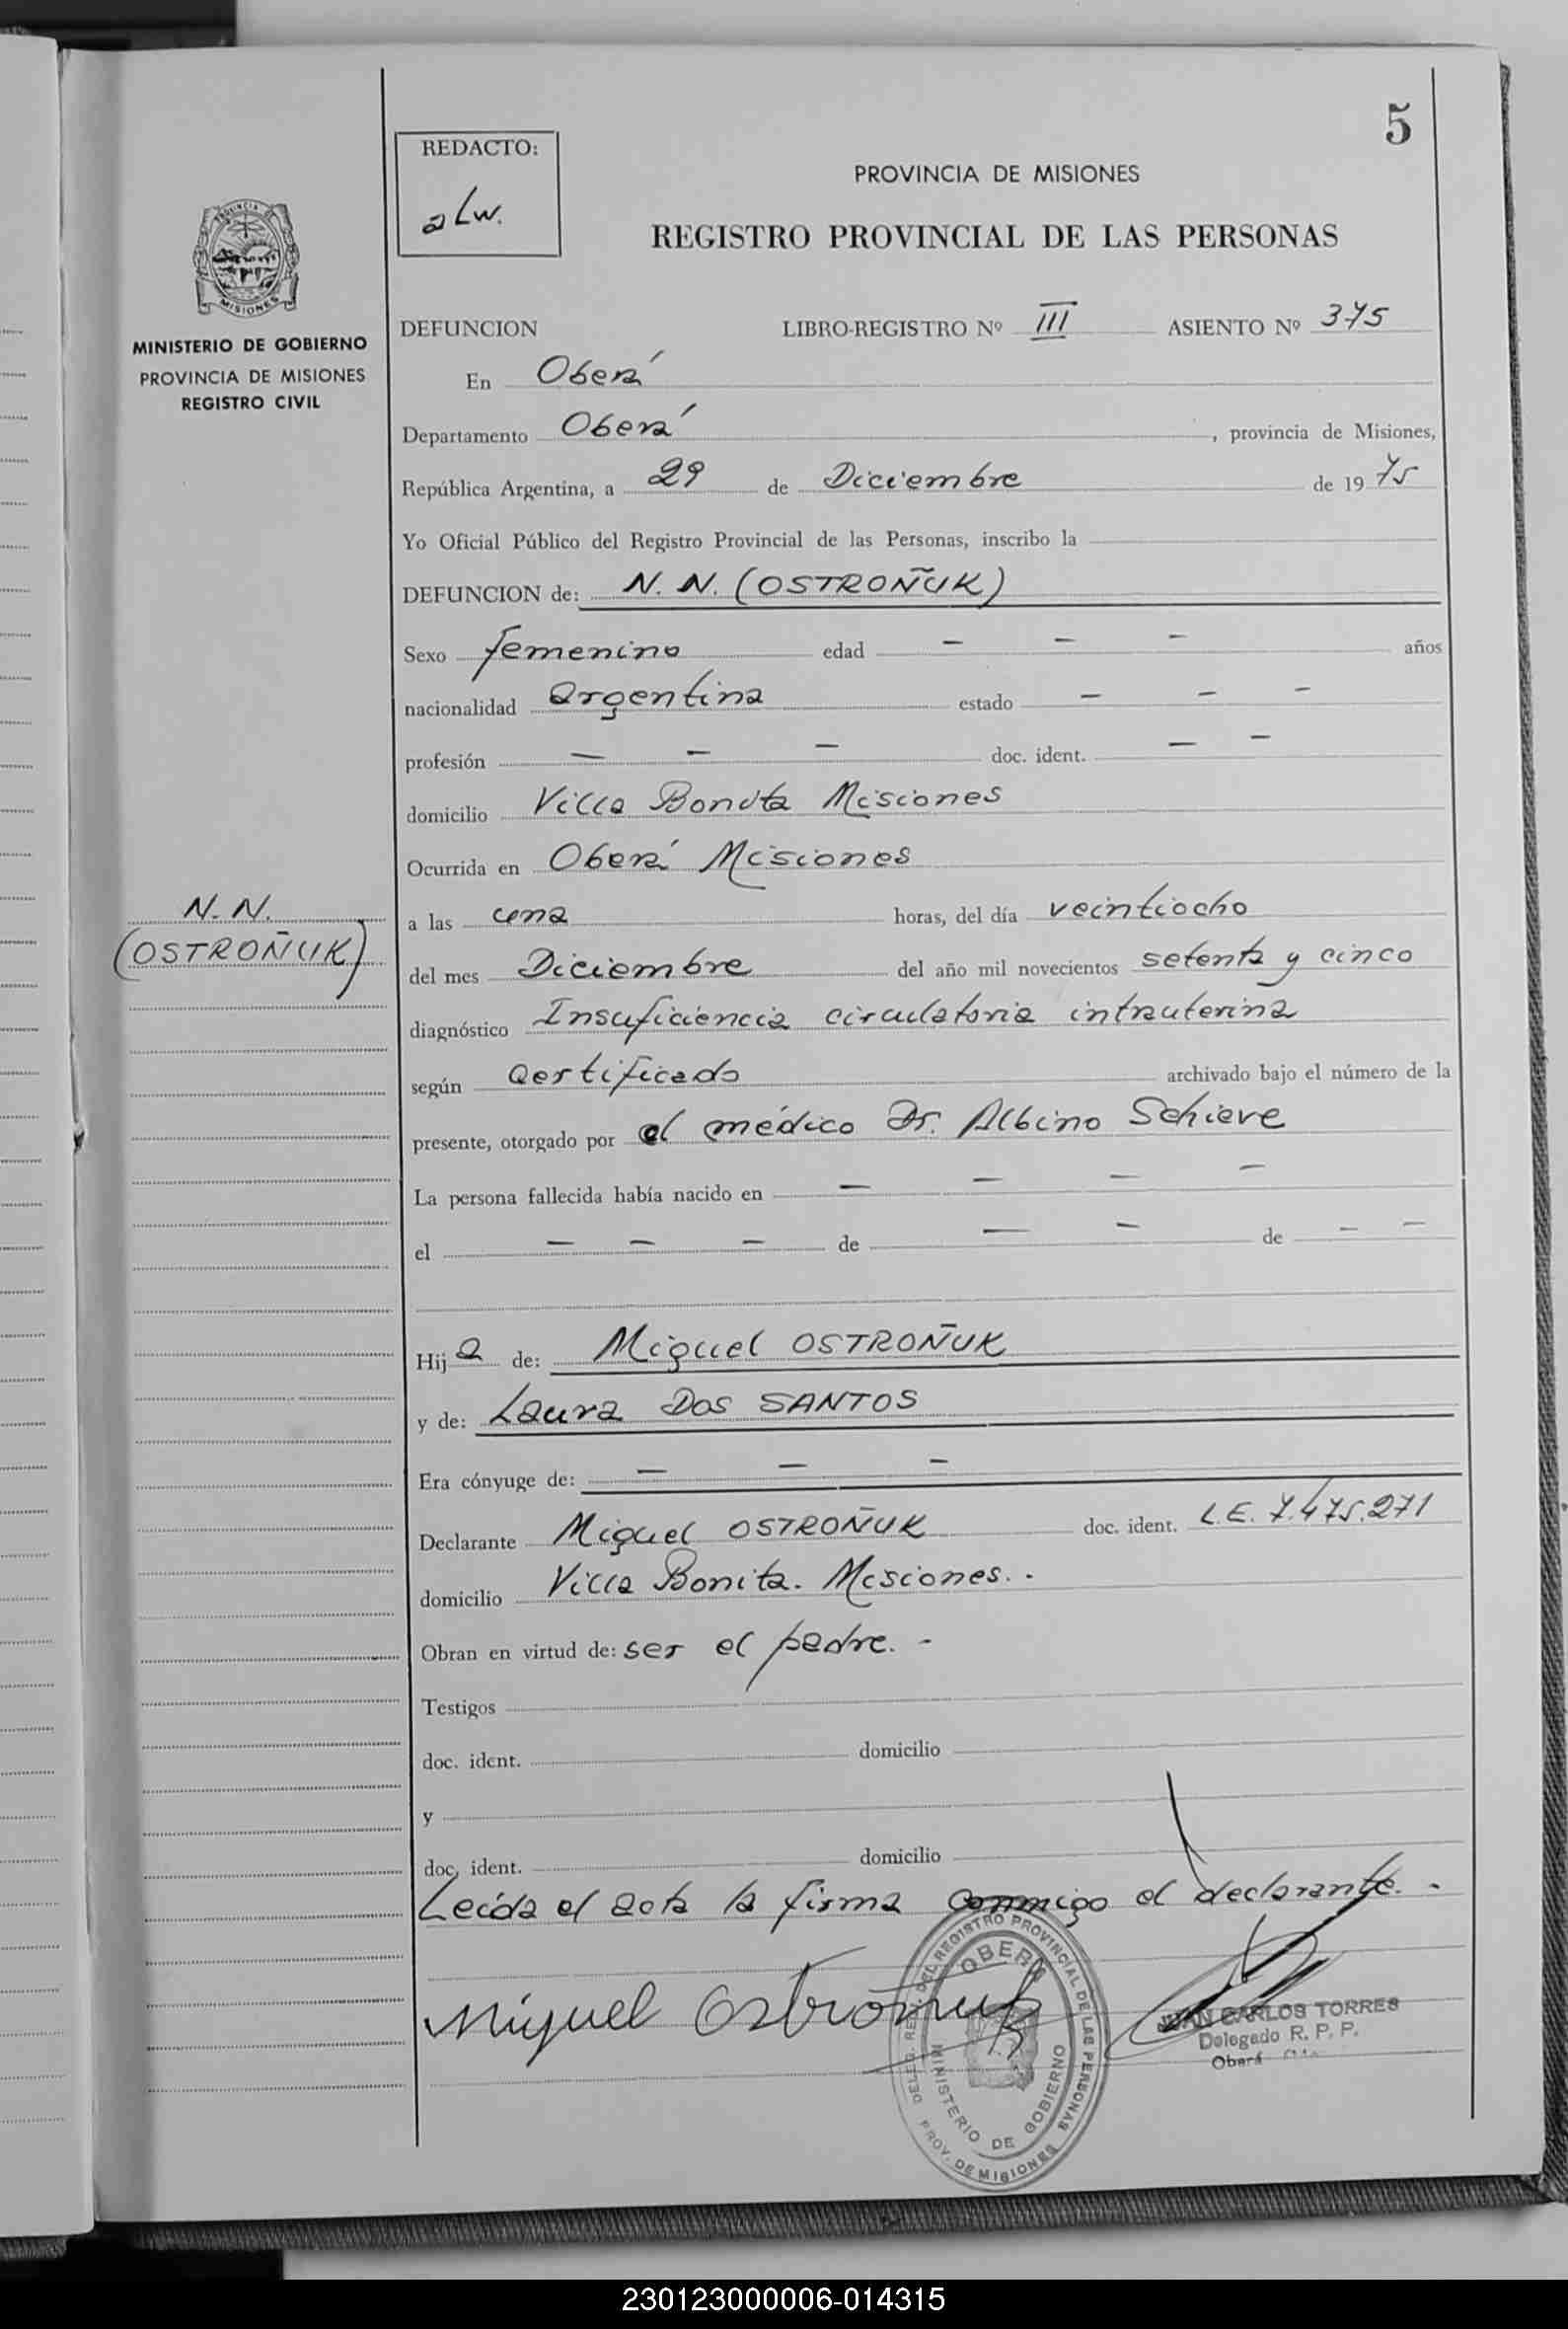 5
REDACTO:
alw.
PROVINCIA DE MISIONES
REGISTRO PROVINCIAL DE LAS PERSONAS
MINISTERIO DE GOBIERNO
PROVINCIA DE MISIONES
REGISTRO CIVIL
DEFUNCION LIBRO-REGISTRO Nº III ASIENTO Nº 375
En Oberá
Departamento Oberá, provincia de Misiones,
República Argentina, a 29 de Diciembre de 1975
Yo Oficial Público del Registro Provincial de las Personas, inscribo la
DEFUNCION de: N. N. (OSTROÑUK)
Sexo femenino edad - - - años
nacionalidad argentina estado - - -
profesión - - - doc. ident. - -
domicilio Villa Bonita Misiones
Ocurrida en Oberá Misiones
N. N.
(OSTROÑUK)
a las una horas, del día veintiocho
del mes Diciembre del año mil novecientos setenta y cinco
diagnóstico Insuficiencia circulatoria intrauterina
según certificado archivado bajo el número de la
presente, otorgado por el médico Dr. Albino Schieve
La persona fallecida había nacido en - - - -
el - - - de - - de - -
Hija de: Miguel OSTROÑUK
y de: Laura Dos SANTOS
Era cónyuge de: - - -
Declarante Miguel OSTROÑUK doc. ident. L.E. 7.475.271
domicilio Villa Bonita. Misiones. .
Obran en virtud de: ser el padre. -
Testigos
doc. ident. domicilio
y
doc. ident. domicilio
Leída el acta la firma conmigo el declarante. -
Miguel Ostroñuk
DELEG. DEL REGISTRO PROVINCIAL DE LAS PERSONAS
OBERA
MINISTERIO DE GOBIERNO
PROV. DE MISIONES
JUAN CARLOS TORRES
Delegado R. P. P.
Oberá
230123000006-014315